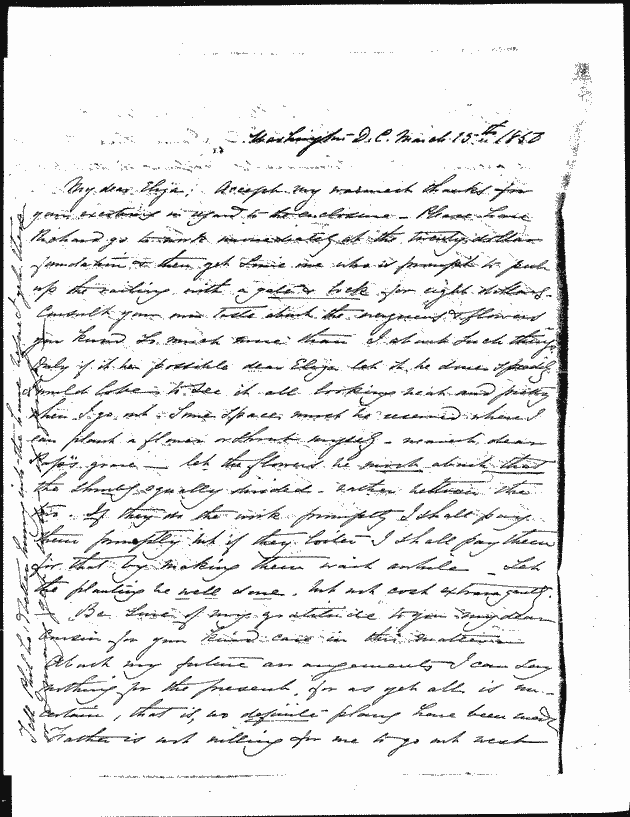 Washington D.C. March 15th 1850
My dear Eliza; Accept my warmest thanks for
your exertions in regard to the enclosure – Please have
Richard go to work immediately at the twenty dollar
foundation & then get some one who is prompt to put
up the railing with a gate & lock for eight dollars –
Consult your own taste about the evergreens & flowers
you know so much more than I about such things
Only if it be possible dear Eliza let it be done speedily
I would love to see it all looking neat and pretty
when I go out – Some space must be reserved where I
can plant a flower or shrub myself – near dear
Papa's grave – let the flowers be much about that
the shrubs equally divided – rather between the
two. If they do the work promptly I shall pay
them promptly but if they loiter I shall pay them
for that by making them wait awhile – Let
the planting be well done, but not cost extravagantly.
Be sure of my gratitude to you my dear
Cousin for your kind care in this matter
About my future arrangements I can say
nothing for the present, for as yet all is un-
certain, that is, no definite plans have been made
Father is not willing for me to go out west
Tell